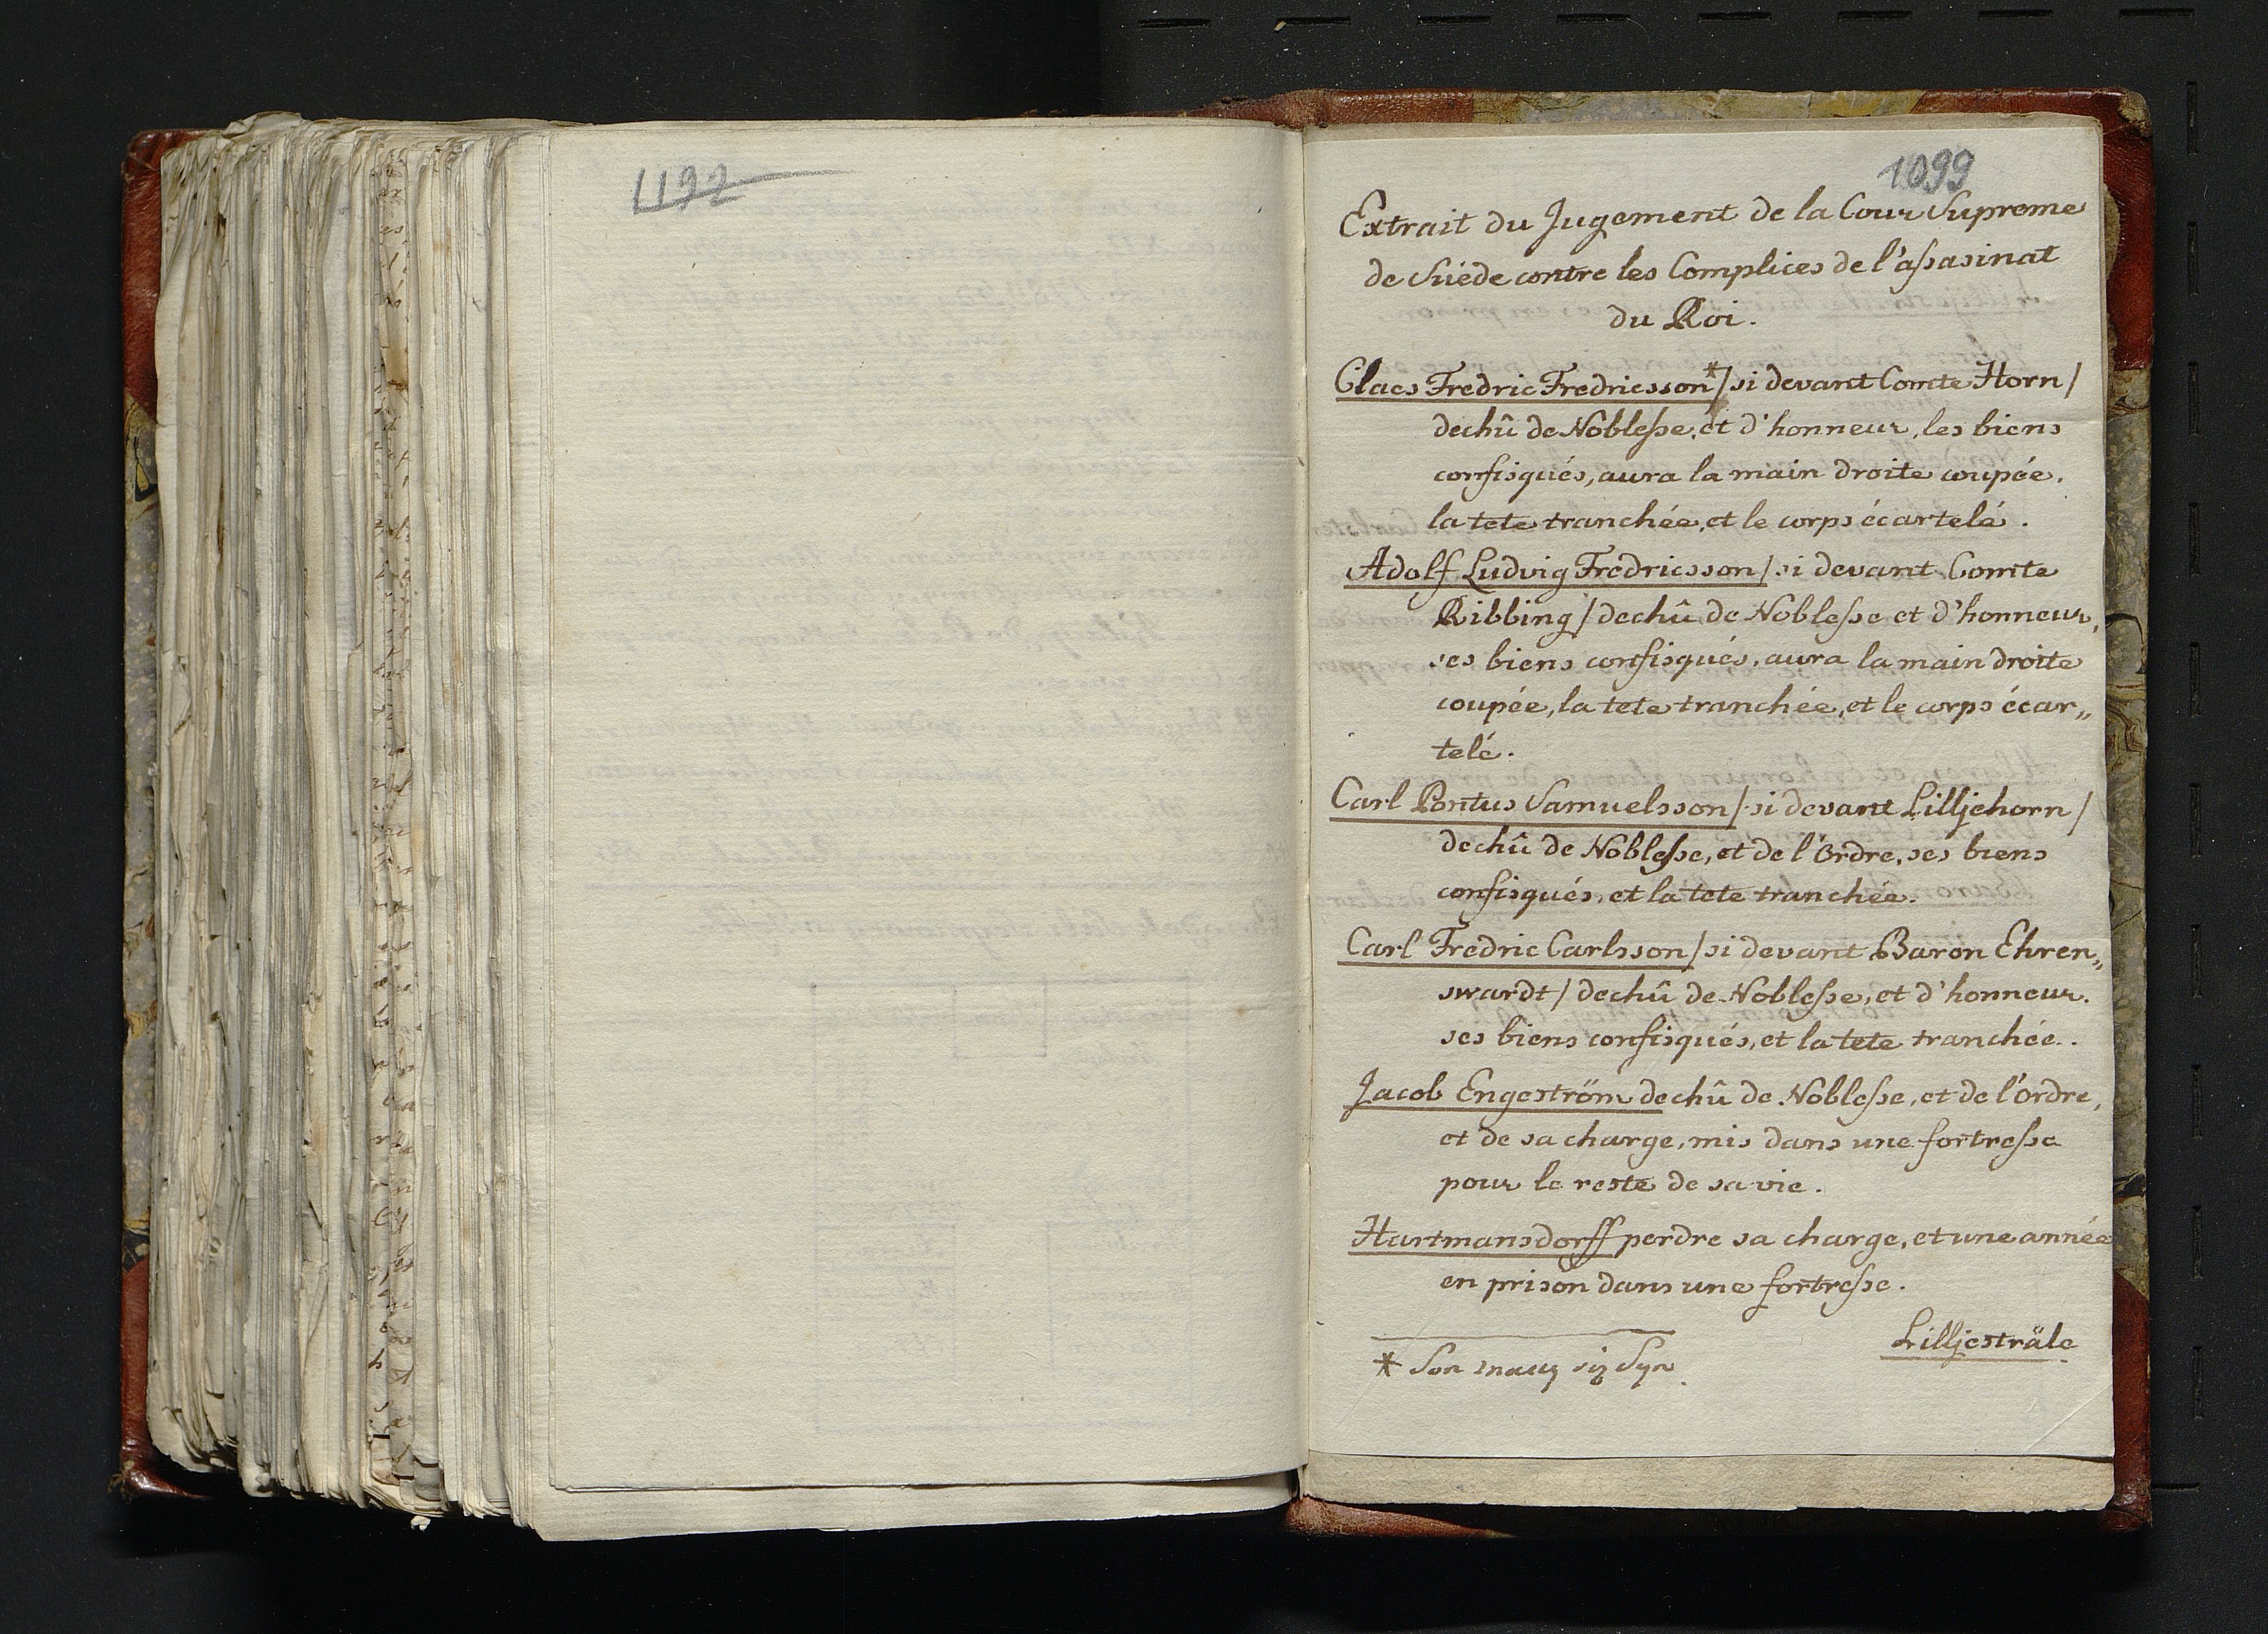 1192
1099
Extrait du Jugement de la Cour Supreme
de Suéde contre les Complices de l'aſsasinat
du Roi.
Claes Fredric Fredricsson*/ si devant Comte Horn /
dechû de Nobleſse, et d'honneur, les biens
confisqués, aura la main droite coupée,
la tete tranchée, et le corps écartelé.
Adolf Ludvig Fredricsson / si devant Comte
Ribbing / dechû de Nobleſse et d'honneur,
ses biens confisqués, aura la main droite
coupée, la tete tranchée, et le corps écar„
telé.
Carl Pontus Samuelsson / si devant Lilljehorn /
dechû de Nobleſse, et de l'Ordre, ses biens
confisqués, et la tete tranchée.
Carl Fredric Carlsson / si devant Baron Ehren„
swardt / dechû de Nobleſse, et d'honneur.
ses biens confisqués, et la tete tranchée.
Jacob Engeström dechû de Nobleſse, et de l'Ordre,
et de sa charge, mis dans une fortreſse
pour le reste de sa vie.
Hartmansdorff perdre sa charge, et une année
en prison dans une fortreſse.
Lilljesträle
* Son